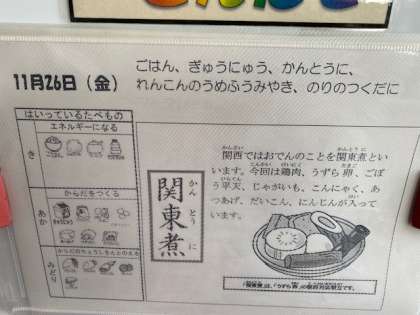 11月26日（金）
ごはん、ぎゅうにゅう、かんとうに、
れんこんのうめふうみやき、のりのつくだに
はいっているたべもの
エネルギーになる
き
からだをつくる
あか
からだのちょうしをととのえる
みどり
関東煮
かんとうに
関西ではおでんのことを関東煮とい
います。今回は鶏肉、うずら卵、ごぼ
う平天、じゃがいも、こんにゃく、あ
つあげ、だいこん、にんじんが入って
います。